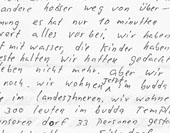 andere häuser weg von über-
mung es hat nur 10 minuten
alles vorbei, wir haben
mit wasser, die kinder haben
halten wir hatten gedacht
leben nicht mehr. Aber wir
noch, wir wohnen jetzt im budd
im landesinneren, wir wohnen
300 leuten im budda Tempel
unseren dorf 33 personen gesto